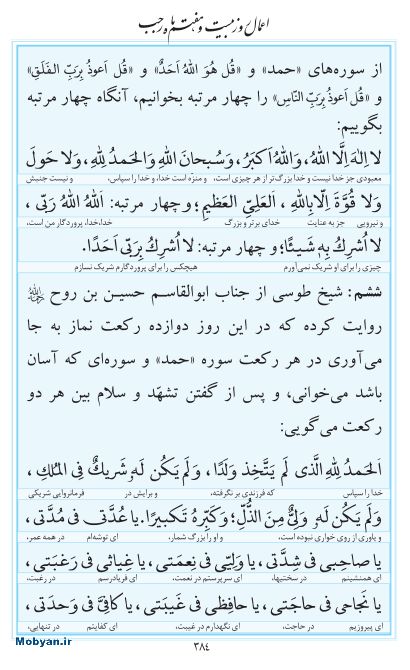 اعمال روز بیست و هفتم ماه رجب
از سوره‌های «حمد» و «قُل هُوَ اللهُ اَحَدٌ» و «قُل اَعوذُ بِرَبِّ الفَلَقِ»
و «قُل اَعوذُ بِرَبِّ النّاسِ» را چهار مرتبه بخوانیم، آنگاه چهار مرتبه
بگوییم:
لا اِلٰهَ اِلَّا اللهُ، وَاللهُ اَکبَرُ، وَسُبحانَ اللهِ وَالحَمدُ لِلّٰهِ، وَلا حَولَ
معبودی جز خدا نیست و خدا بزرگ‌تر از هر چیزی است، و منزّه است خدا، و خدا را سپاس، و نیست جنبش
وَلا قُوَّةَ اِلّا بِاللهِ ، اَلعَلِیِّ العَظیمِ؛ و چهار مرتبه: اَللهُ اَللهُ رَبّی ،
و نیرویی جز به عنایت خدای برتر و بزرگ خدا،خدا، پروردگار من است،
لا اُشرِكُ بِهٖ شَیـئًا؛ و چهار مرتبه: لا اُشرِكُ بِرَبّی اَحَدًا.
چیزی را برای او شریک نمی‌آورم هیچکس را برای پروردگارم شریک نسازم
ششم: شیخ طوسی از جناب ابوالقاسم حسین بن روح
روایت کرده که در این روز دوازده رکعت نماز به جا
می‌آوری در هر رکعت سوره «حمد» و سوره‌ای که آسان
باشد می‌خوانی، و پس از گفتن تشهّد و سلام بین هر دو
رکعت می‌گویی:
اَلحَمدُ لِلّٰهِ الَّذی لَم یَتَّخِذ وَلَدًا ، وَلَم یَکُن لَهٗ شَریكٌ فِی المُلكِ ،
خدا را سپاس که فرزندی بر نگرفته، و برایش در فرمانروایی شریکی
وَلَم یَکُن لَهٗ وَلِیٌّ مِنَ الذُّلِّ؛ وَکَبِّرهُ تَکبیرًا. یا عُدَّتی فی مُدَّتی ،
و یاوری از روی خواری نبوده است، و او را بزرگ شمار، ای توشه‌ام در همه عمر،
یا صاحِبی فی شِدَّتی ، یا وَلِیّی فی نِعمَتی ، یا غِیاثی فی رَغبَتی ،
ای همنشینم در سختیها، ای سرپرستم در نعمت، ای فریادرسم در رغبت،
یا نَجاحی فی حاجَتی ، یا حافِظی فی غَیبَتی ، یا کافِیَّ فی وَحدَتی ،
ای پیروزیم در حاجت، ای نگهدارم در غیبت، ای کفایتم در تنهایی،
۳۸۴
Mobyan.ir